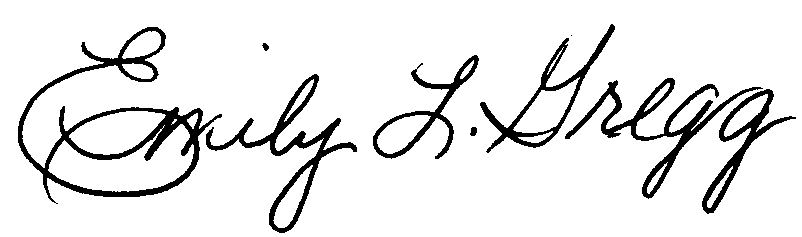 Emily L. Gregg